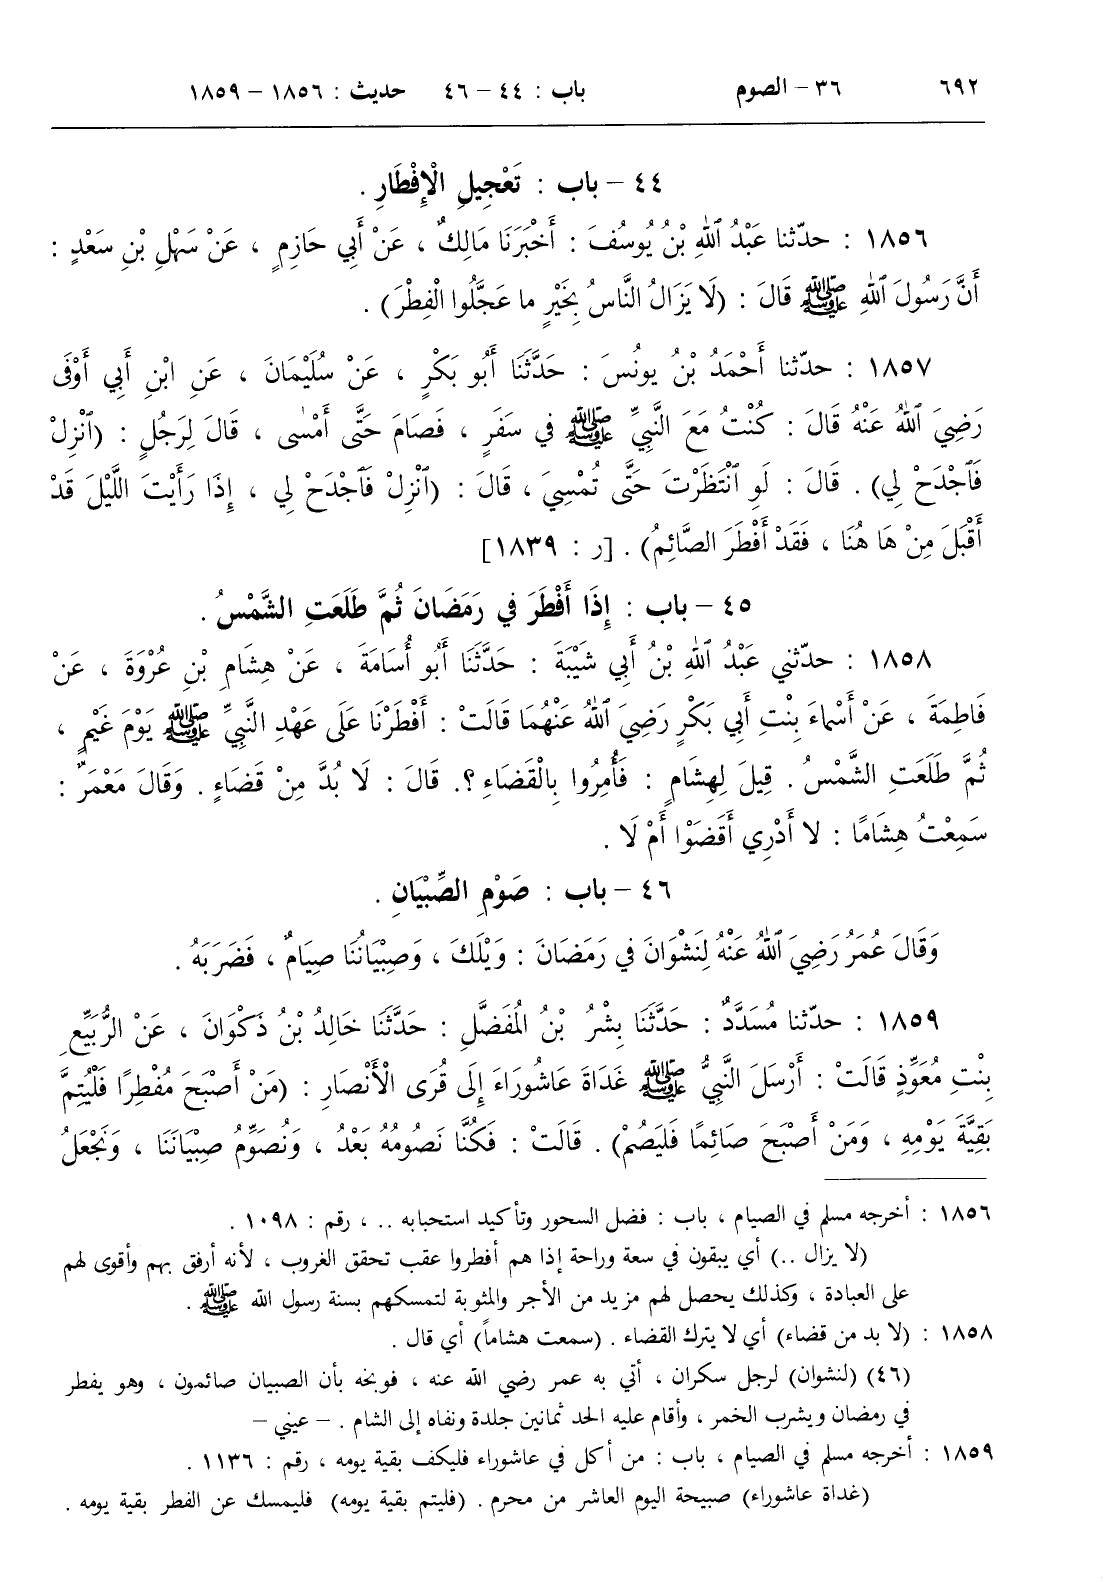 ٦٩٢ ٣٦ – الصوم باب : ٤٤ – ٤٦ حديث : ١٨٥٦ – ١٨٥٩
٤٤ – باب : تَعْجِيلِ الْإِفْطَارِ .
١٨٥٦ : حدّثنا عَبْدُ ٱللهِ بْنُ يُوسُفَ : أَخْبَرَنَا مَالِكٌ ، عَنْ أَبِي حَازِمٍ ، عَنْ سَهْلِ بْنِ سَعْدٍ :
أَنَّ رَسُولَ ٱللهِ ﷺ قَالَ : (لَا يَزَالُ النَّاسُ بِخَيْرٍ ما عَجَّلُوا الْفِطْرَ) .
١٨٥٧ : حدّثنا أَحْمَدُ بْنُ يونُسَ : حَدَّثَنَا أَبُو بَكْرٍ ، عَنْ سُلَيْمَانَ ، عَنِ ابْنِ أَبِي أَوْفَى
رَضِيَ ٱللهُ عَنْهُ قَالَ : كُنْتُ مَعَ النَّبِيِّ ﷺ في سَفَرٍ ، فَصَامَ حَتَّى أَمْسٰى ، قَالَ لِرَجُلٍ : (ٱنْزِلْ
فَٱجْدَحْ لِي) . قَالَ : لَوِ ٱنْتَظَرْتَ حَتَّى تُمْسِيَ ، قَالَ : (ٱنْزِلْ فَٱجْدَحْ لِي ، إِذَا رَأَيْتَ اللَّيْلَ قَدْ
أَقْبَلَ مِنْ هَا هُنَا ، فَقَدْ أَفْطَرَ الصَّائِمُ) . [ر : ١٨٣٩]
٤٥ – باب : إِذَا أَفْطَرَ في رَمَضَانَ ثُمَّ طَلَعَتِ الشَّمْسُ .
١٨٥٨ : حدّثني عَبْدُ ٱللهِ بْنُ أَبِي شَيْبَةَ : حَدَّثَنَا أَبُو أُسَامَةَ ، عَنْ هِشَامِ بْنِ عُرْوَةَ ، عَنْ
فَاطِمَةَ ، عَنْ أَسْماءَ بِنْتِ أَبِي بَكْرٍ رَضِيَ ٱللهُ عَنْهُمَا قَالَتْ : أَفْطَرْنَا عَلَى عَهْدِ النَّبِيِّ ﷺ يَوْمَ غَيْمٍ ،
ثُمَّ طَلَعَتِ الشَّمْسُ . قِيلَ لِهِشَامٍ : فَأُمِرُوا بِالْقَضَاءِ ؟. قَالَ : لَا بُدَّ مِنْ قَضَاءٍ . وَقَالَ مَعْمَرٌ :
سَمِعْتُ هِشَامًا : لا أَدْرِي أَقَضَوْا أَمْ لَا .
٤٦ – باب : صَوْمِ الصِّبْيَانِ .
وَقَالَ عُمَرُ رَضِيَ ٱللهُ عَنْهُ لِنَشْوَانَ في رَمَضَانَ : وَيْلَكَ ، وَصِبْيَانُنَا صِيَامٌ ، فَضَرَبَهُ .
١٨٥٩ : حدّثنا مُسَدَّدٌ : حَدَّثَنَا بِشْرُ بْنُ المُفَضَّلِ : حَدَّثَنَا خَالِدُ بْنُ ذَكْوَانَ ، عَنْ الرُّبَيِّعِ
بِنْتِ مُعَوِّذٍ قَالَتْ : أَرْسَلَ النَّبِيُّ ﷺ غَدَاةَ عَاشُورَاءَ إِلَى قُرَى الْأَنْصَارِ : (مَنْ أَصْبَحَ مُفْطِرًا فَلْيُتِمَّ
بَقِيَّةَ يَوْمِهِ ، وَمَنْ أَصْبَحَ صَائِمًا فَليَصُمْ) . قَالَتْ : فَكُنَّا نَصُومُهُ بَعْدُ ، وَنُصَوِّمُ صِبْيَانَنَا ، وَنَجْعَلُ
١٨٥٦ : أخرجه مسلم في الصيام ، باب : فضل السحور وتأكيد استحبابه .. ، رقم : ١٠٩٨ .
(لا يزال ..) أي يبقون في سعة وراحة إذا هم أفطروا عقب تحقق الغروب ، لأنه أرفق بهم وأقوى لهم
على العبادة ، وكذلك يحصل لهم مزيد من الأجر والمثوبة لتمسكهم بسنة رسول الله ﷺ .
١٨٥٨ : (لا بد من قضاء) أي لا يترك القضاء . (سمعت هشاماً) أي قال .
(٤٦) (لنشوان) لرجل سكران ، أتي به عمر رضي الله عنه ، فوبخه بأن الصبيان صائمون ، وهو يفطر
في رمضان ويشرب الخمر ، وأقام عليه الحد ثمانين جلدة ونفاه إلى الشام . – عيني –
١٨٥٩ : أخرجه مسلم في الصيام ، باب : من أكل في عاشوراء فليكف بقية يومه ، رقم : ١١٣٦ .
(غداة عاشوراء) صبيحة اليوم العاشر من محرم . (فليتم بقية يومه) فليمسك عن الفطر بقية يومه .